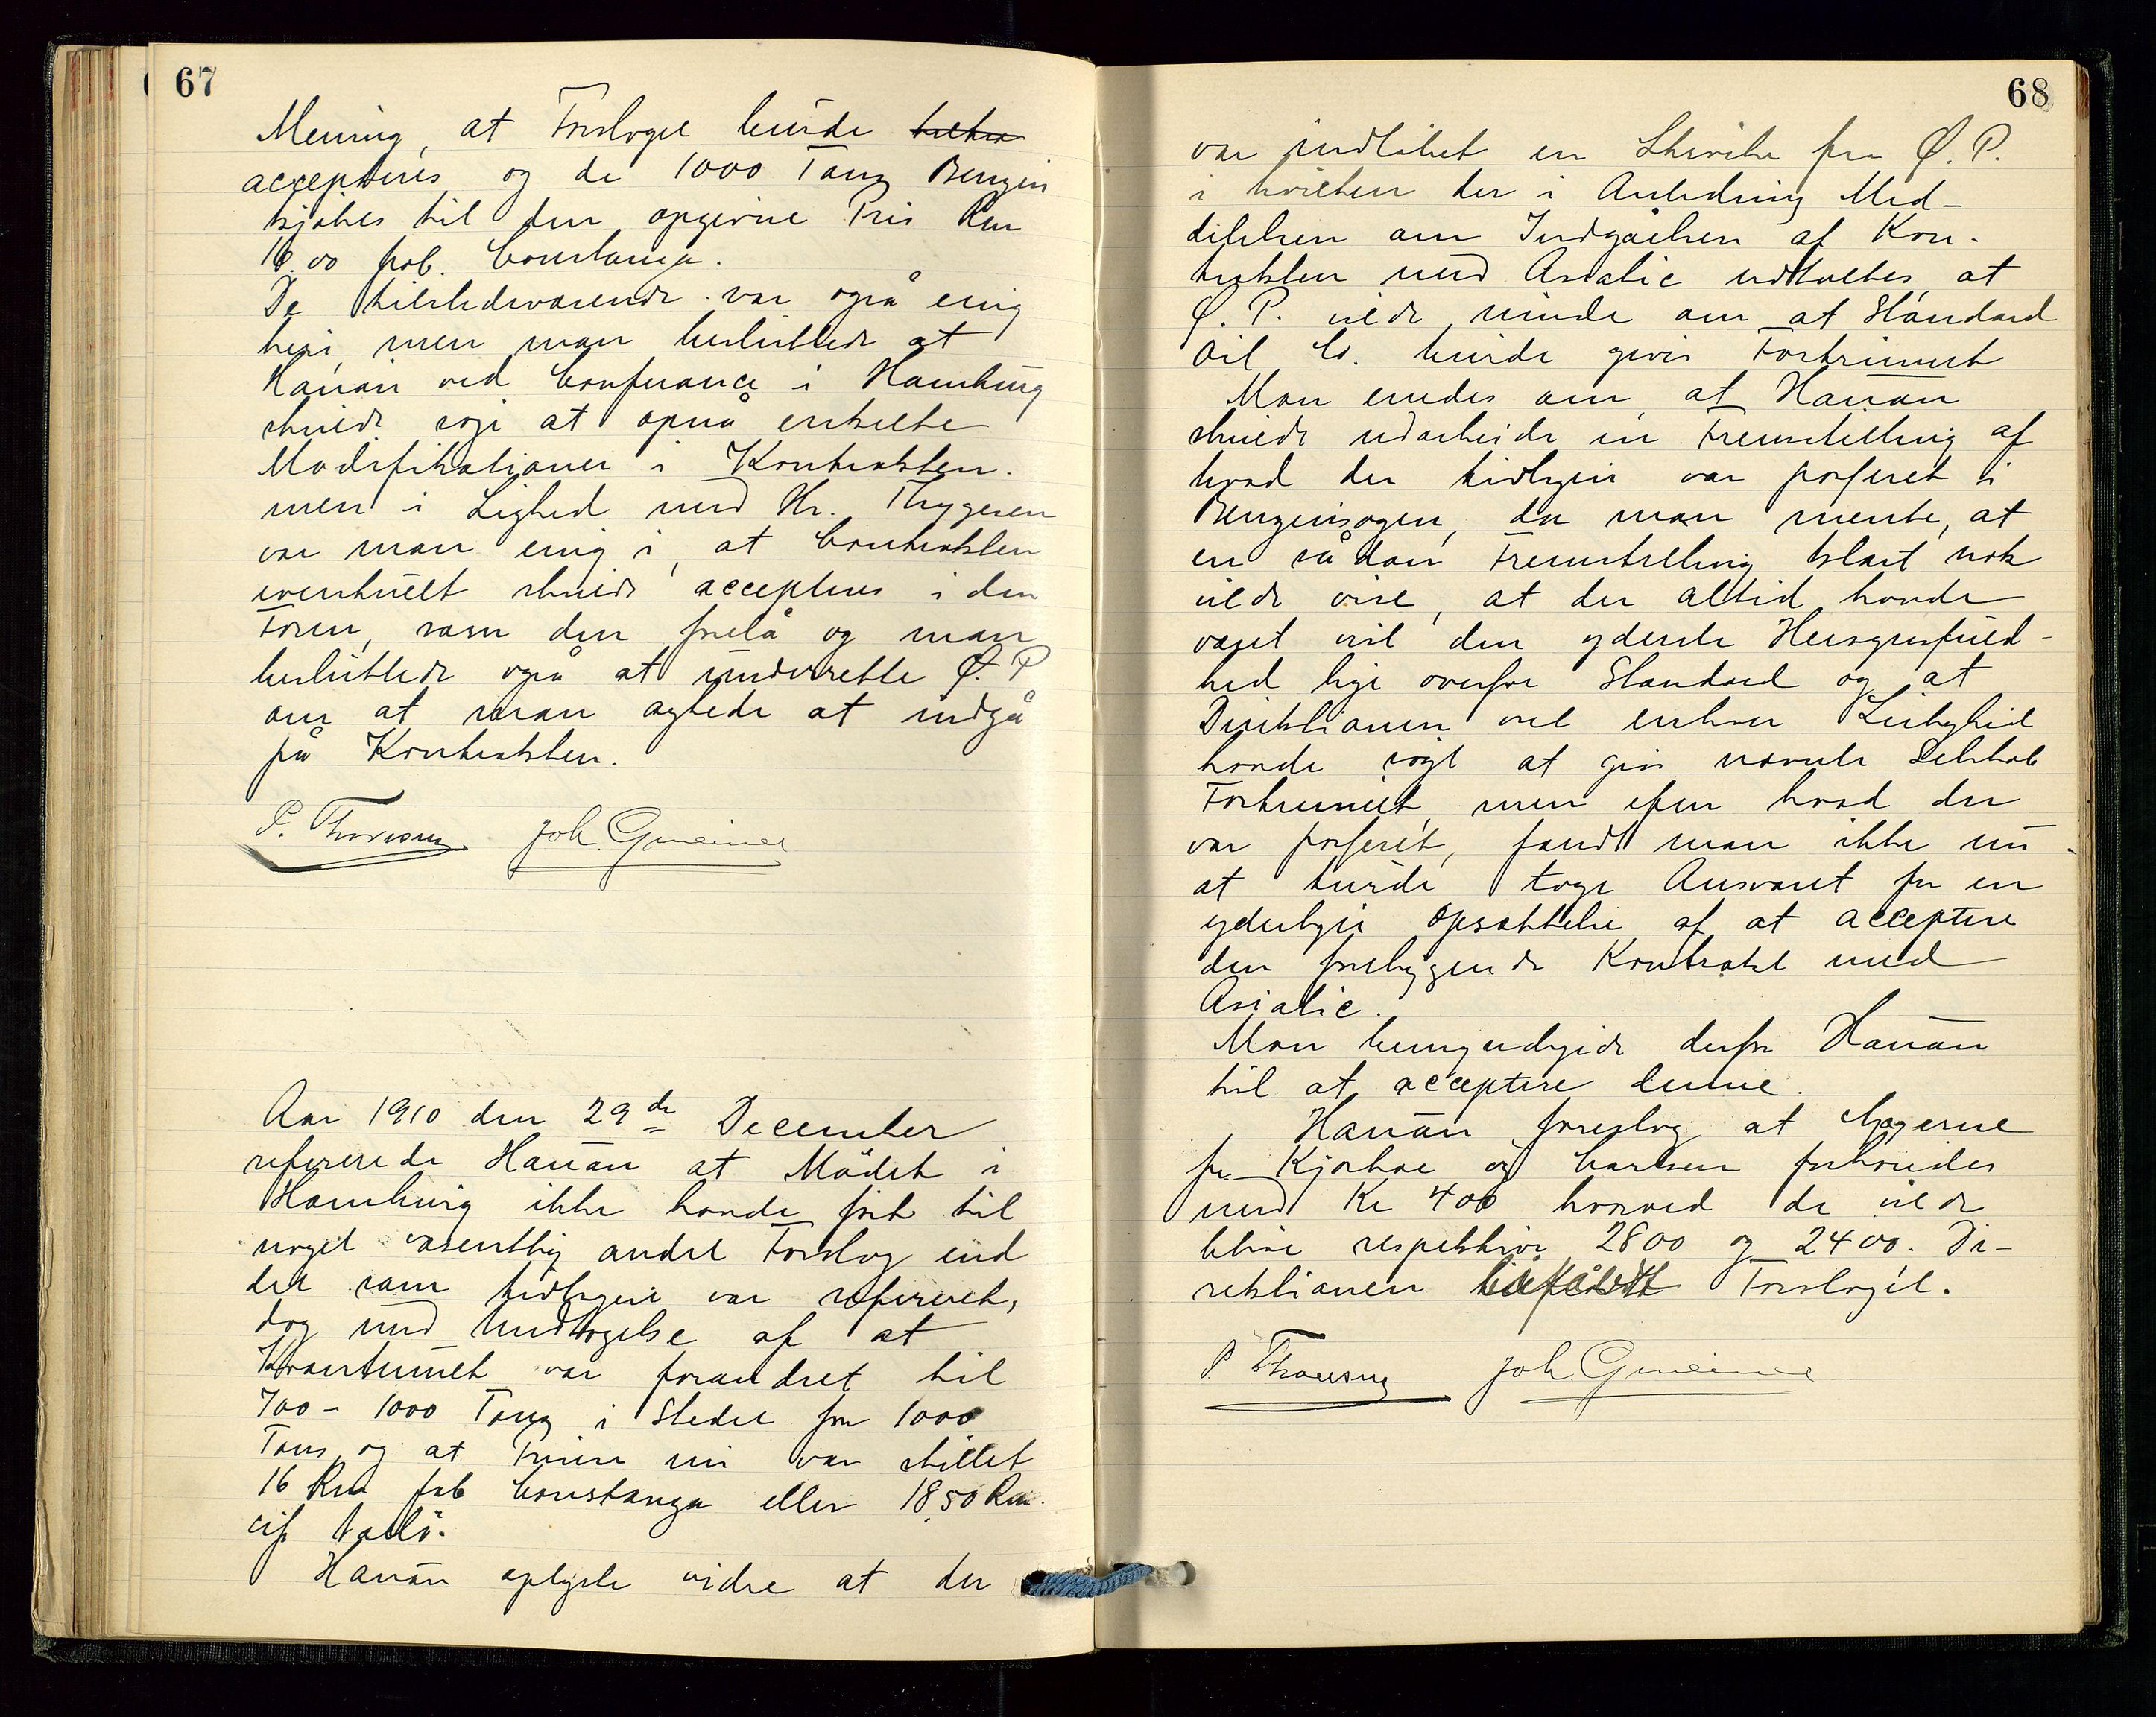 67
Mening, at Forslaget burde
accepteres og de 1000 Tons Benzin
kjøbes til den opgivne Pris Rm
16.00 fob. Constanza.
De tilstedeværende var også enig
heri, men man besluttede at
Hanan ved Conferance i Hamburg
skulde søge at opnå enkelte
Modifikationer i Kontrakten.
men i Lighed med Hr. Thygesen
var man enig i, at Contrakten
eventuelt skulde accepteres i den
Form, som den forelå og man
besluttede også at underrette Ø. P
om at man agtede at indgå
på Kontrakten.
P. Thoresen Joh. Gmeiner
Aar 1910 den 29de December
refererede Hanan at Mødet i
Hamburg ikke havde ført til
noget væsentlig andet Forslag end
det som tidligere var refereret,
dog med Undtagelse af at
Kvantumet var forandret til
700 - 1000 Tons i Stedet for 1000
Tons og at Prisen nu var stillet
16 Rm fob Constanza eller 18,50 Rm.
cif Vallø.
Hanan oplyste videre at der
68
var indløbet en Skrivelse fra Ø. P.
i hvilken der i Anledning Med-
delelsen om Indgåelsen af Kon-
trakten med Asiatic udtaltes, at
Ø. P. vilde minde om at Standard
Oil Co. burde gives Fortrinnet
Man enedes om, at Hanan
skulde udarbeide en Fremstilling af
hvad der tidligere var passeret i
Benzinsagen, da man mente, at
en sådan Fremstilling klart nok
vilde vise, at der altid havde
været vist den yderste Hensynsfuld-
hed lige overfor Standard og at
Direktionen ved enhver Leilighed
havde søgt at give nævnte Selskab
Fortrinnet, men efter hvad der
var passeret, fandt man ikke nu
at turde tage Ansvaret for en
yderligere Opsættelse af at acceptere
den foreliggende Kontrakt med
Asiatic.
Man bemyndigede derfor Hanan
til at acceptere denne.
Hanan foreslog at Gagerne
for Kjørboe og Carlsen forhøiedes
med Kr 400 hvorved de vilde
blive respektive 2800 og 2400. Di-
rektionen bifaldt Forslaget.
P Thoresen Joh. Gmeiner